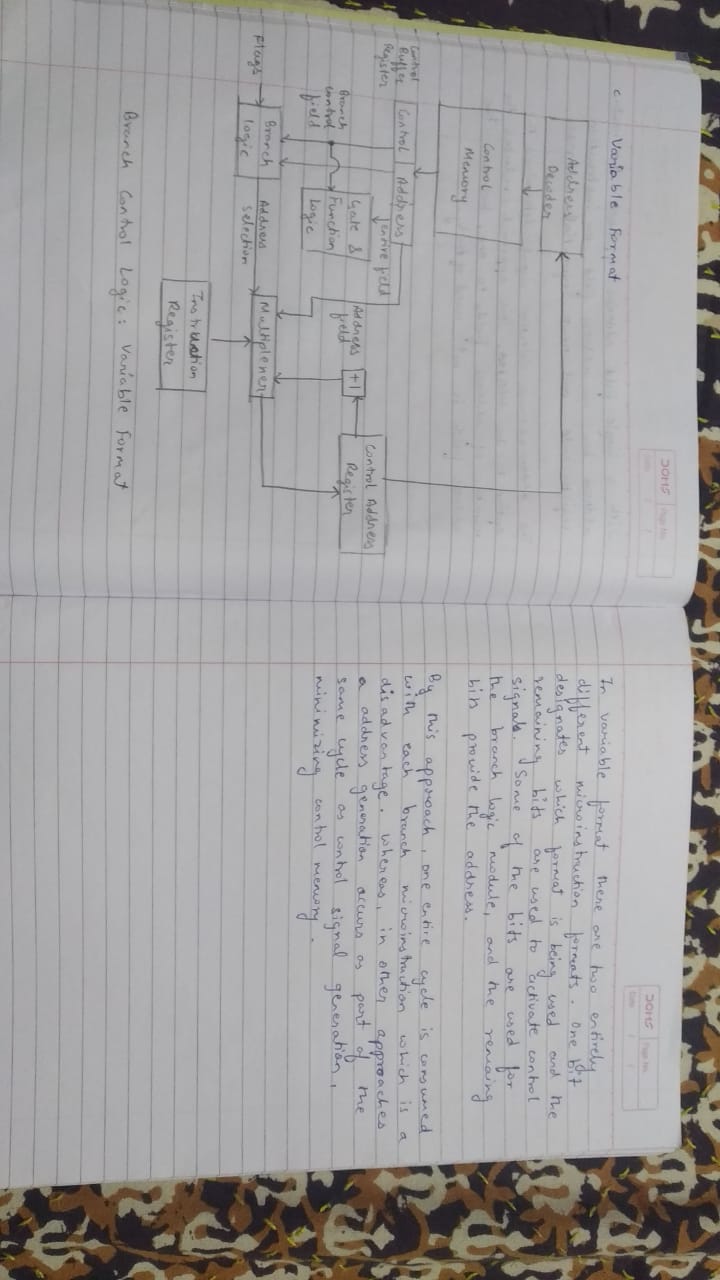 DOMS Page No.
Date / /
c Variable Format
Address
Decoder
Control
Memory
Control
Buffer
Register
Control Address
entire field
Gate &
Function
Logic
Branch
control
field
Address
field
+1
Control Address
Register
Flags
Branch
logic
Address
selection
Multiplexer
Instruction
Register
Branch Control Logic: Variable Format
DOMS Page No.
Date / /
In variable format there are two entirely
different microinstruction formats. One bit
designates which format is being used and the
remaining bits are used to activate control
signals. Some of the bits are used for
the branch logic module, and the remaing
bits provide the address.
By this approach, one entire cycle is consumed
with each branch microinstruction which is a
disadvantage. Whereas, in other approaches
a address generation occurs as part of the
same cycle as control signal generation,
minimizing control memory.